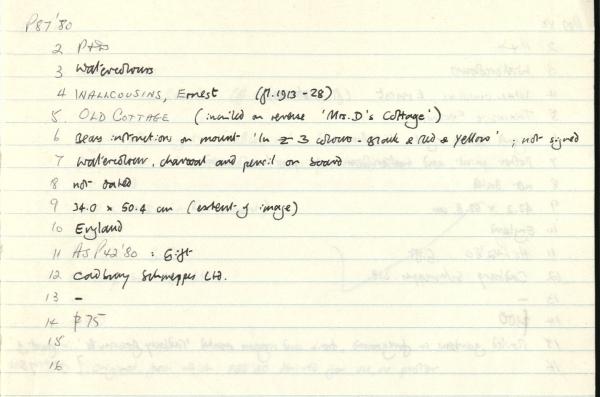 P87'80
2 P+D
3 Watercolours
4 WALLCOUSINS, Ernest (fl. 1913-28)
5. OLD COTTAGE (inscribed on reverse 'Mrs. D's Cottage')
6 Bears instruction on mount 'In 3 colours - Black & Red & Yellow'; not signed
7 Watercolour, charcoal and pencil on board
8 not dated
9 34.0 x 50.4 cm (extent of image)
10 England
11 AS P42'80 : Gift
12 Cadbury Schweppes Ltd.
13 -
14 75
15
16